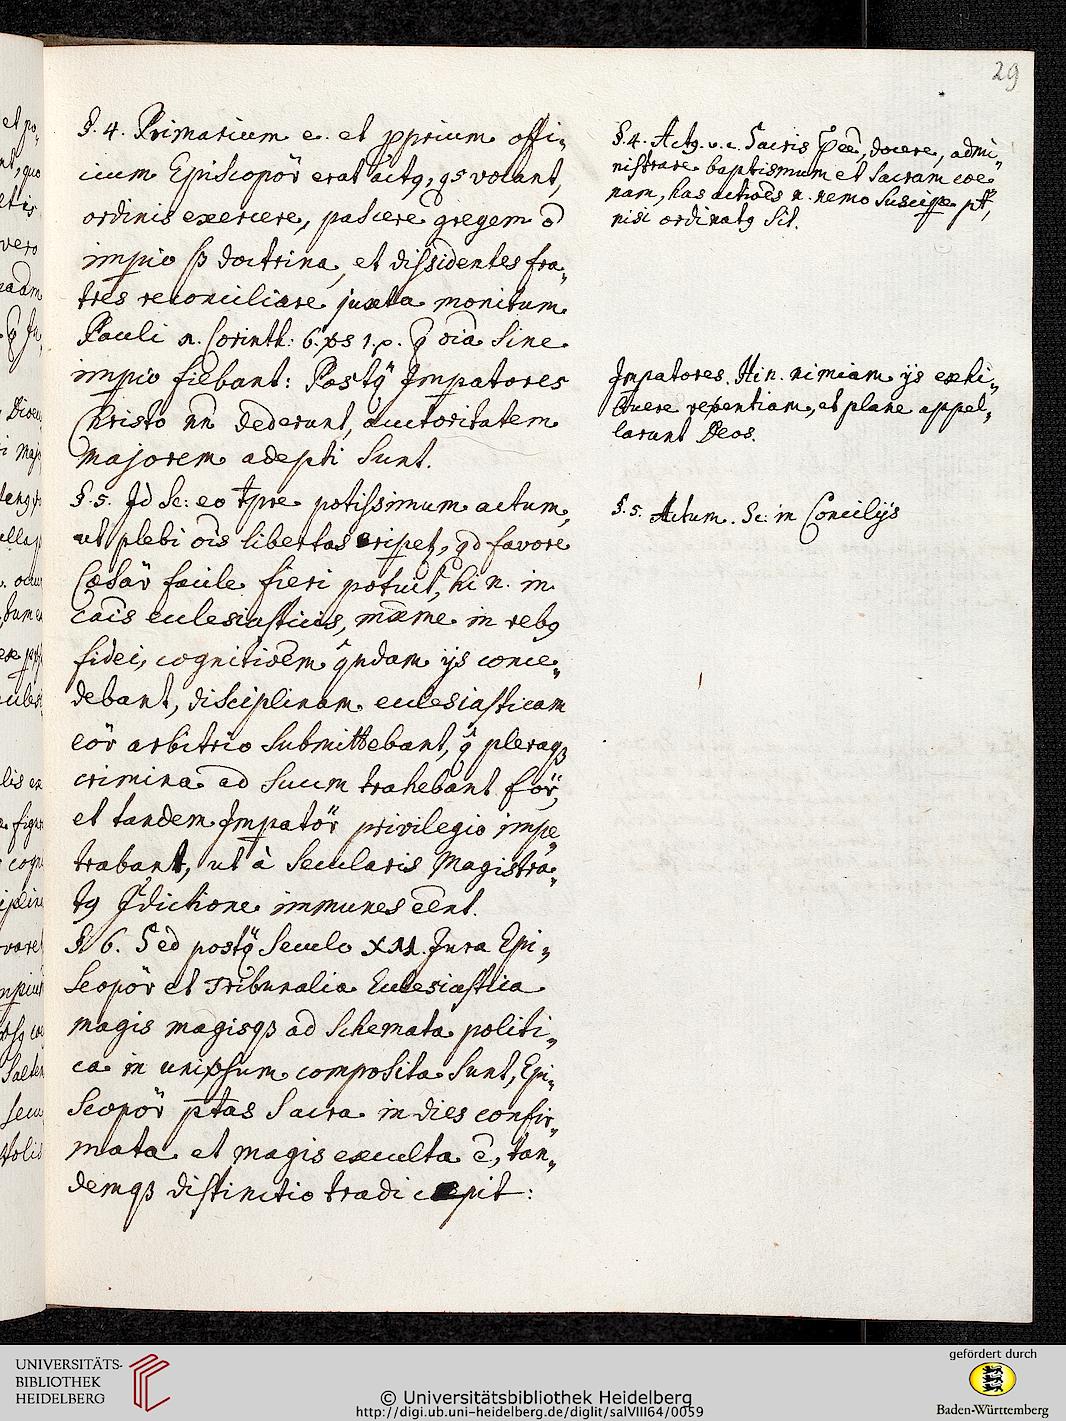 29
§. 4. Primarium e. et pprium offi„
cium Episcopor̃ erat actꝰ, qs vocant,
ordinis exercere, pascere gregem
impio doctrina, et dissidentes fra„
tres reconciliare juxta monitum
Pauli Corinth: 6. oia sine
impio fiebant: Postq̃ Impatores
Christo nn dederunt, auctoritatem
majorem adepti sunt.
§. 5. Id Sc: eo tpre potissimum actum,
ut plebi ois libertas eripet, qd favore
Cæsar̃ facile fieri potuit, hi n. in
cais ecclesiasticis, maxme in rebꝰ
fidei, cognitioem qndam ijs conce„
debant, disciplinam ecclesiasticam
eor̃ arbitrio submittebant, q̃ pleraqꝫ
crimina ad suum trahebant for̃,
et tandem Impator̃ privilegio impe„
trabant, ut à secularis Magistra„
tꝰ Jdictione immunes eent.
§. 6. Sed postq̃ seculo XII. Jura Epi„
scopor̃ et Tribunalia Ecclesiastica
magis magisqꝫ ad schemata politi„
ca in unipsum composita sunt, Epi„
scopor̃ ptas sacra in dies confir„
mata et magis exculta ē, tan„
demqꝫ distinctio tradi cepit:
§. 4. Actꝰ. v. c. Sacris pee, docere, admi„
nistrare baptismum et sacram coe„
nam, has actioes n. nemo suscipe pt,
nisi ordinatꝰ sit.
Impatores. Hi n. nimiam ijs exhi„
buere reventiam, et plane appel„
larunt Deos.
§. 5. Actum. Sc: in Concilijs
UNIVERSITÄTS-
BIBLIOTHEK
HEIDELBERG
© Universitätsbibliothek Heidelberg
http://digi.ub.uni-heidelberg.de/diglit/salVIII64/0059
gefördert durch
Baden-Württemberg